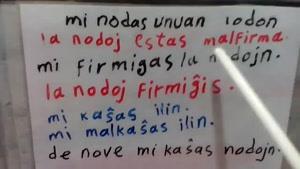 mi nodas unuan nodon
la nodoj estas malfirma.
mi firmigas la nodojn.
la nodoj firmiĝis.
mi kaŝas ilin.
mi malkaŝas ilin.
de nove mi kaŝas nodojn.